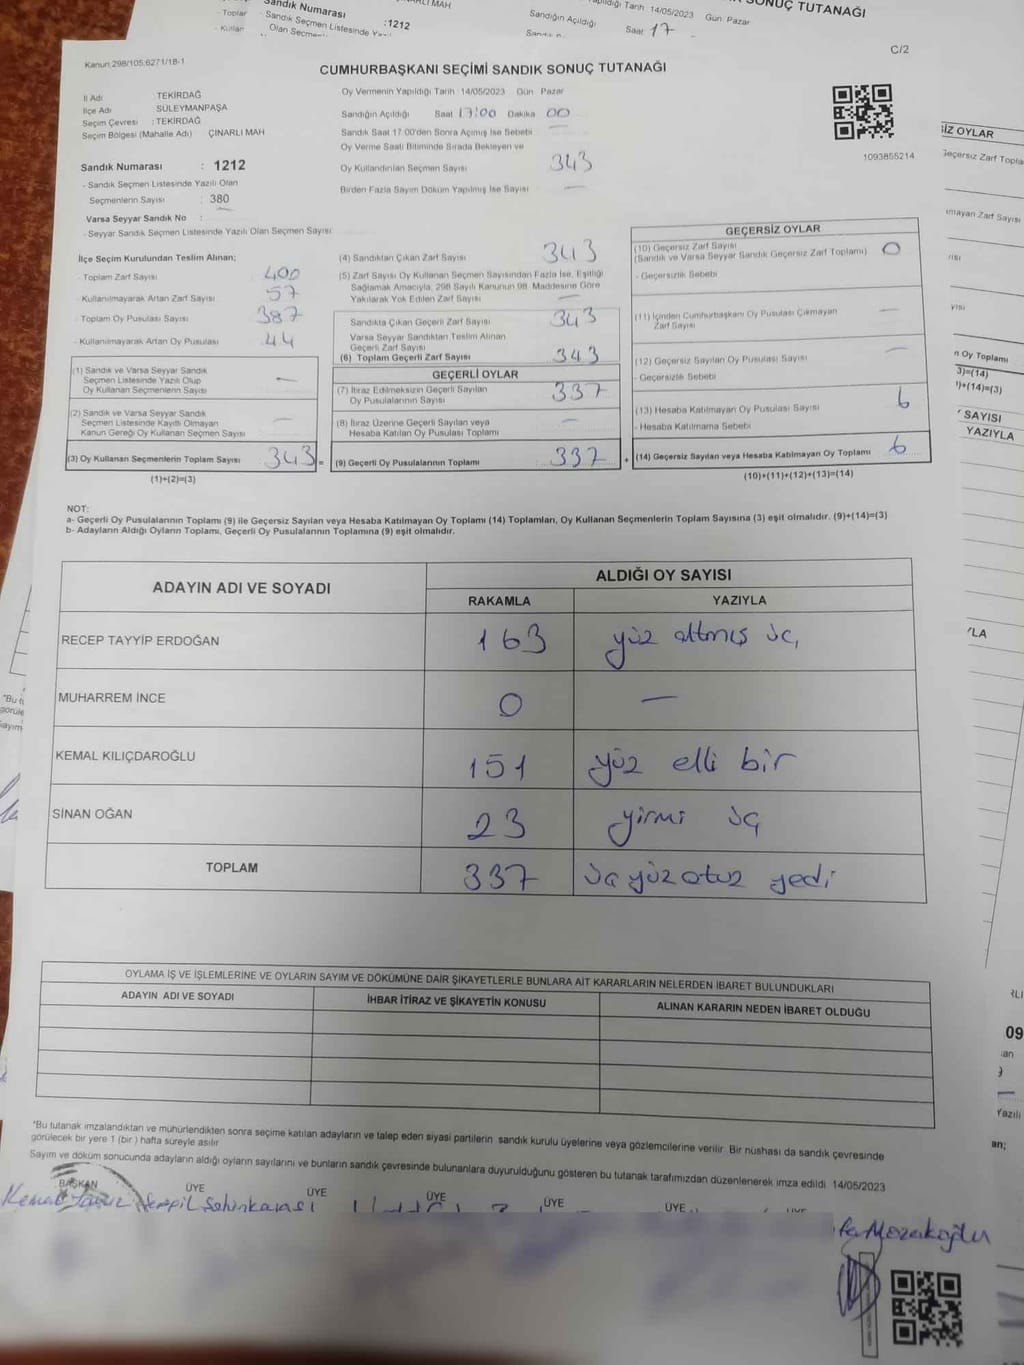 Sandık Numarası :1212
Sandık Seçmen Listesinde
Toplam
14/05/2023 Gün Pazar
Sandığın Açıldığı Saat 17
SONUÇ TUTANAĞI
C/2
Kanun:298/105,6271/18-1
CUMHURBAŞKANI SEÇİMİ SANDIK SONUÇ TUTANAĞI
İl Adı TEKİRDAĞ
İlçe Adı SÜLEYMANPAŞA
Seçim Çevresi : TEKİRDAĞ
Seçim Bölgesi (Mahalle Adı) ÇINARLI MAH
Sandık Numarası : 1212
- Sandık Seçmen Listesinde Yazılı Olan
Seçmenlerin Sayısı : 380
Varsa Seyyar Sandık No :
- Seyyar Sandık Seçmen Listesinde Yazılı Olan Seçmen Sayısı
Oy Vermenin Yapıldığı Tarih :14/05/2023 Gün Pazar
Sandığın Açıldığı Saat 17:00 Dakika 00
Sandık Saat 17:00'den Sonra Açılmış İse Sebebi —
Oy Verme Saati Bitiminde Sırada Bekleyen ve
Oy Kullandırılan Seçmen Sayısı 343
Birden Fazla Sayım Döküm Yapılmış İse Sayısı —
1093855214
İlçe Seçim Kurulundan Teslim Alınan;
- Toplam Zarf Sayısı 400
- Kullanılmayarak Artan Zarf Sayısı 57
- Toplam Oy Pusulası Sayısı 387
- Kullanılmayarak Artan Oy Pusulası 44
(1) Sandık ve Varsa Seyyar Sandık
Seçmen Listesinde Yazılı Olup
Oy Kullanan Seçmenlerin Sayısı —
(2) Sandık ve Varsa Seyyar Sandık
Seçmen Listesinde Kayıtlı Olmayan
Kanun Gereği Oy Kullanan Seçmen Sayısı —
(3) Oy Kullanan Seçmenlerin Toplam Sayısı 343 =
(1)+(2)=(3)
(4) Sandıktan Çıkan Zarf Sayısı 343
(5) Zarf Sayısı Oy Kullanan Seçmen Sayısından Fazla İse, Eşitliği
Sağlamak Amacıyla, 298 Sayılı Kanunun 98. Maddesine Göre
Yakılarak Yok Edilen Zarf Sayısı —
Sandıkta Çıkan Geçerli Zarf Sayısı 343
Varsa Seyyar Sandıktan Teslim Alınan
Geçerli Zarf Sayısı
(6) Toplam Geçerli Zarf Sayısı 343
GEÇERLİ OYLAR
(7) İtiraz Edilmeksizin Geçerli Sayılan
Oy Pusulalarının Sayısı 337
(8) İtiraz Üzerine Geçerli Sayılan veya
Hesaba Katılan Oy Pusulası Toplamı —
(9) Geçerli Oy Pusulalarının Toplamı 337 +
GEÇERSİZ OYLAR
(10) Geçersiz Zarf Sayısı
(Sandık ve Varsa Seyyar Sandık Geçersiz Zarf Toplamı) 0
- Geçersizlik Sebebi
(11) İçinden Cumhurbaşkanı Oy Pusulası Çıkmayan
Zarf Sayısı —
(12) Geçersiz Sayılan Oy Pusulası Sayısı —
- Geçersizlik Sebebi
(13) Hesaba Katılmayan Oy Pusulası Sayısı 6
- Hesaba Katılmama Sebebi
(14) Geçersiz Sayılan veya Hesaba Katılmayan Oy Toplamı 6
(10)+(11)+(12)+(13)=(14)
NOT:
a- Geçerli Oy Pusulalarının Toplamı (9) ile Geçersiz Sayılan veya Hesaba Katılmayan Oy Toplamı (14) Toplamları, Oy Kullanan Seçmenlerin Toplam Sayısına (3) eşit olmalıdır. (9)+(14)=(3)
b- Adayların Aldığı Oyların Toplamı, Geçerli Oy Pusulalarının Toplamına (9) eşit olmalıdır.
ADAYIN ADI VE SOYADI ALDIĞI OY SAYISI
RAKAMLA YAZIYLA
RECEP TAYYİP ERDOĞAN 163 yüz altmış üç
MUHARREM İNCE 0 —
KEMAL KILIÇDAROĞLU 151 yüz elli bir
SİNAN OĞAN 23 yirmi üç
TOPLAM 337 üçyüzotuz yedi
OYLAMA İŞ VE İŞLEMLERİNE VE OYLARIN SAYIM VE DÖKÜMÜNE DAİR ŞİKAYETLERLE BUNLARA AİT KARARLARIN NELERDEN İBARET BULUNDUKLARI
ADAYIN ADI VE SOYADI İHBAR İTİRAZ VE ŞİKAYETİN KONUSU ALINAN KARARIN NEDEN İBARET OLDUĞU
*Bu tutanak imzalandıktan ve mühürlendikten sonra seçime katılan adayların ve talep eden siyasi partilerin sandık kurulu üyelerine veya gözlemcilerine verilir. Bir nüshası da sandık çevresinde
görülecek bir yere 1 (bir) hafta süreyle asılır.
Sayım ve döküm sonucunda adayların aldığı oyların sayılarını ve bunların sandık çevresinde bulunanlara duyurulduğunu gösteren bu tutanak tarafımızdan düzenlenerek imza edildi. 14/05/2023
BAŞKAN ÜYE ÜYE ÜYE ÜYE ÜYE ÜYE